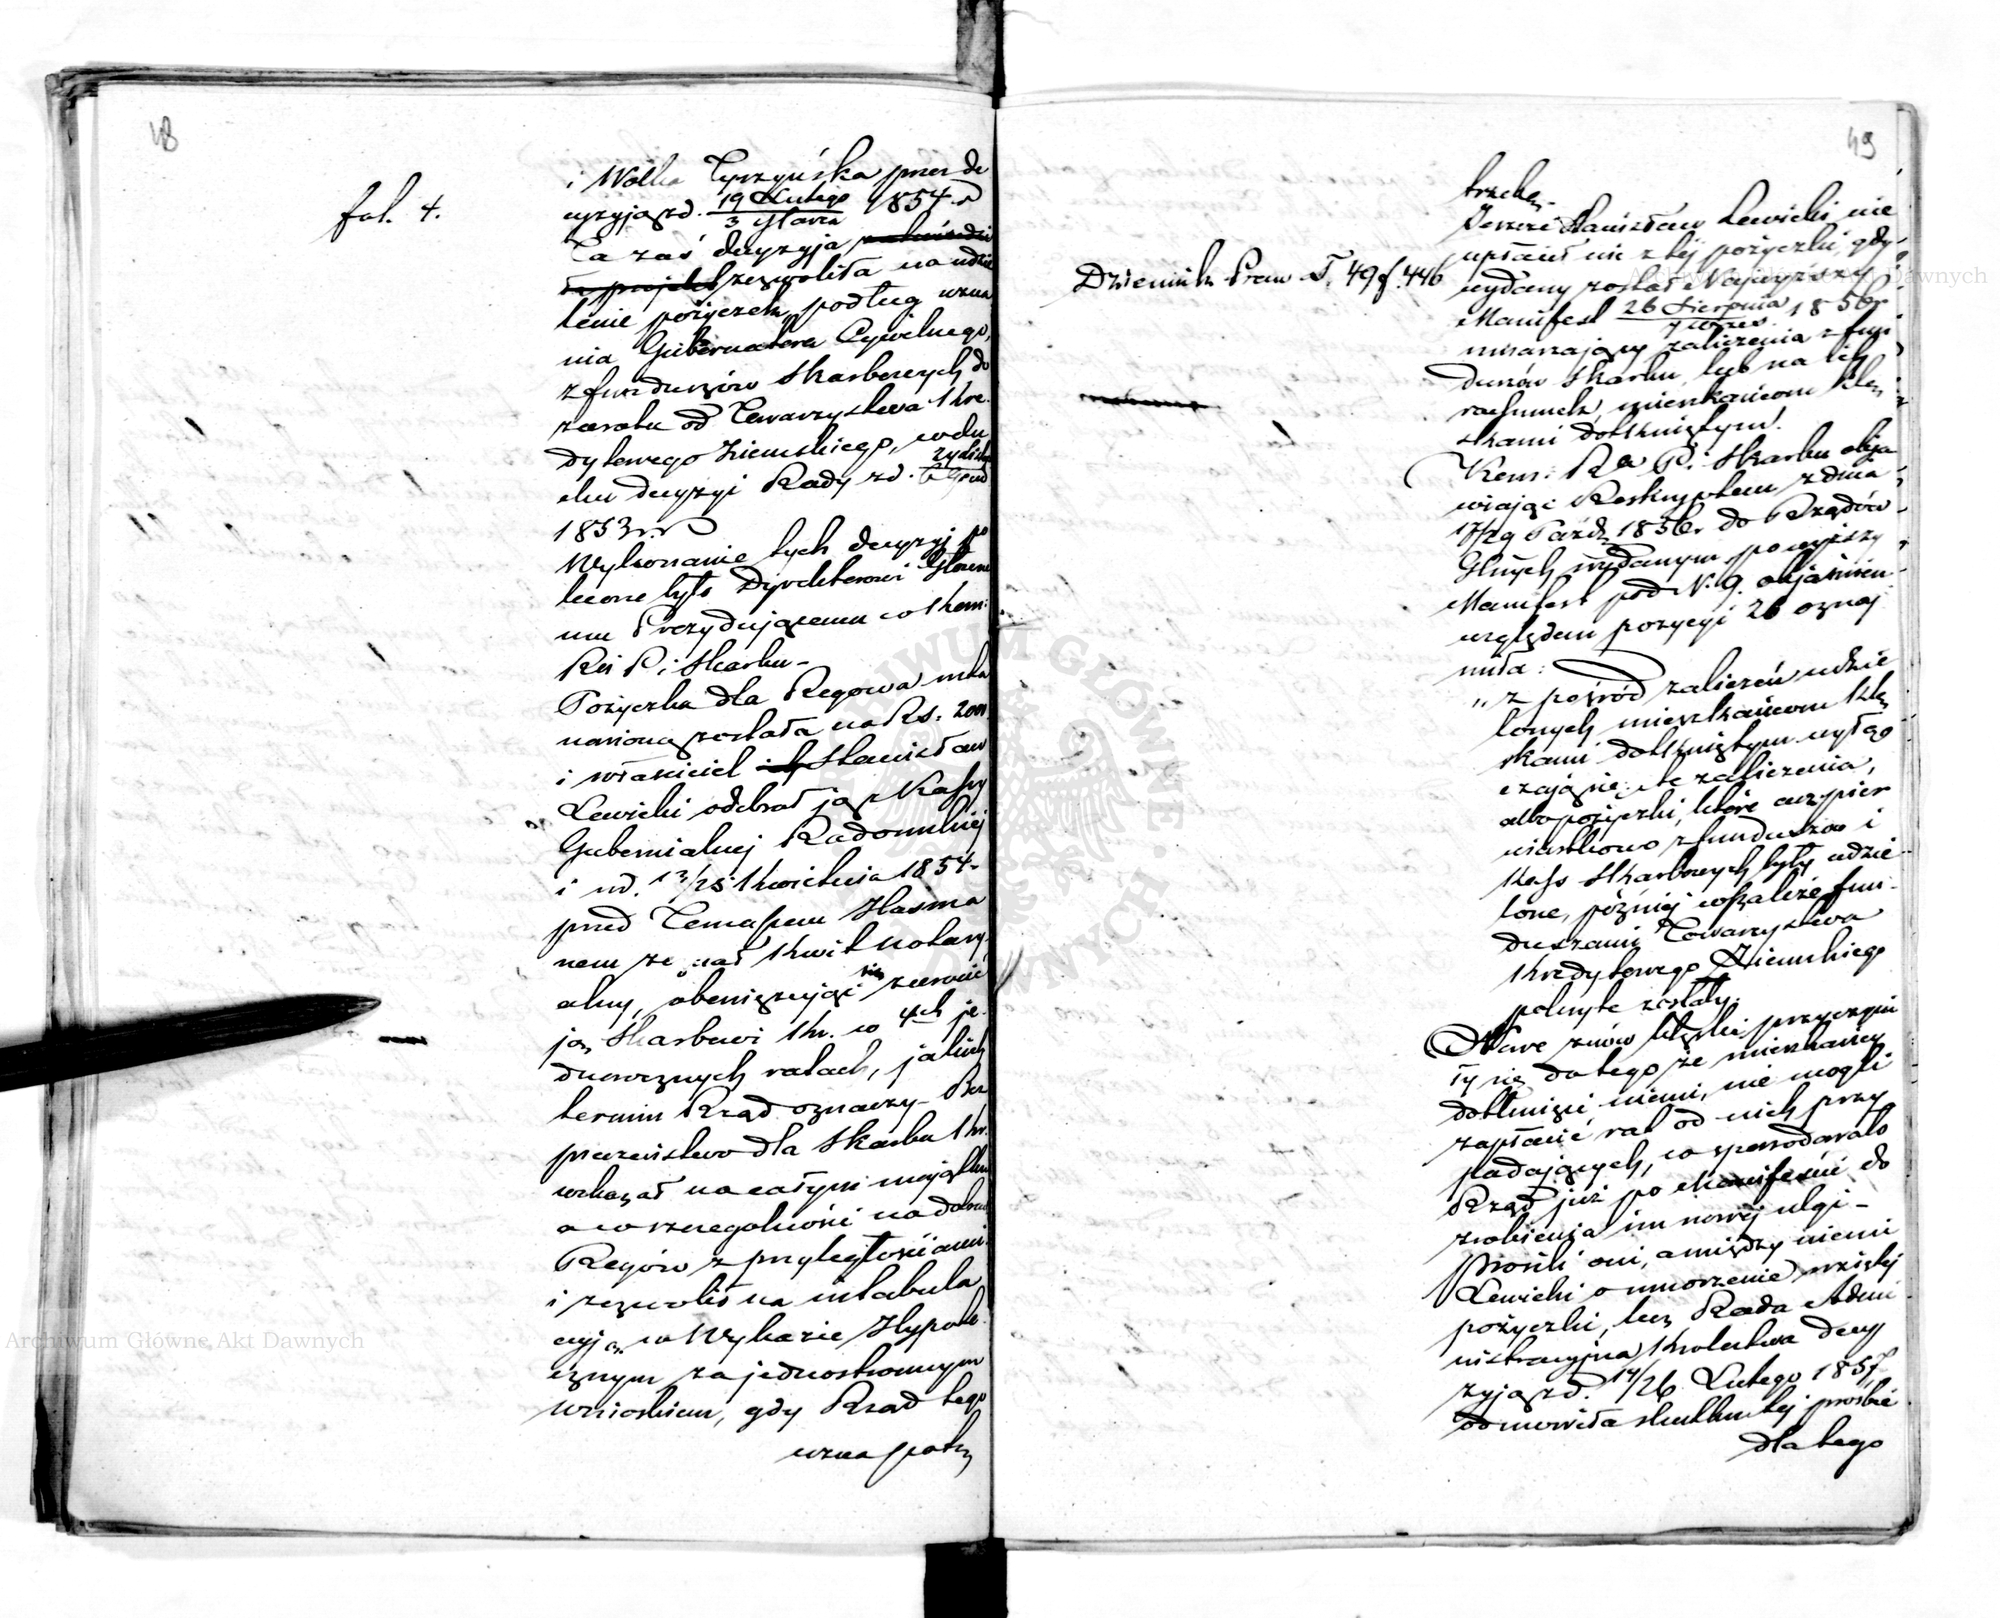 48
fol. 4.
i Wólka Tyrzyńska przez de
cyzyją zd. 19 Lutego / 3 Marca 1854 r.
Ta zaś decyzyja
zezwoliła na udzie
lenie pożyczek, podług uzna
nia Gubernatora Cywilnego,
z funduszów Skarbowych do
zwrotu od Towarzystwa Kre
dytowego Ziemskiego, w du
chu decyzyi Rady zd.
1853 r.
Wykonanie tych decyzyj po
lecone było Dyrektorowi Główne
mu Prezydującemu w Kom:
R. P. i Skarbu –
Pożyczka dla Regowa usta
nowioną została na Rs. 2000.
i właściciel Stanisław
Lewicki odebrał ją z Kassy
Gubernialnej Radomskiej
i zd. 13/25 Kwietnia 1854
przed Tomaszem
nem zeznał kwit notary
alny, obowiązując się zwrócić
ją Skarbowi Kr. w 4ch je
dnorocznych ratach, jakich
termin Rząd oznaczy – Bez
pieczeństwo dla Skarbu Kr.
wskazał na całym majątku
a w szczególności na dobrach
Regów z przyległościami
i zezwolił na intabula
cyją w Wykazie Hypote
cznym za jednostronnym
wnioskiem, gdy Rząd tego
uzna potrz
49
Dziennik Praw T. 49 f. 446
trzebę.
Jeszcze Stanisław Lewicki nie
upłacił nic z tej pożyczki, gdy
wydany został Najwyższy
Manifest 26 Sierpnia / 7 Wrześ. 1856 r
umarzający zaliczenia z fun
duszów Skarbu, lub na ich
rachunek, mieszkańcom klę
skami dotkniętym.
Kom: R. P. i Skarbu obja
wiając Reskryptem z dnia
17/29 Paźdz. 1856 r do Rządów
Glnych wydanym, powyższy
Manifest pod N. 9. objaśnien
względem pozycyi 26 oznaj
miła:
„z pośród zaliczeń udzie
lonych mieszkańcom klę
skami dotkniętym wyłą
czają się: te zaliczenia,
albo pożyczki, które acz pier
wiastkowo z funduszów i
Kass Skarbowych były udzie
lone, później wszakże fun
duszami Towarzystwa
Kredytowego Ziemskiego
pokryte zostały.
Nowe znów klęski przyczyni
ły się do tego że mieszkańcy
dotknięci niemi, nie mogli
zapłacić rat od nich przy
padających, co spowodowało
Rząd już po Manifeście do
zrobienia im nowej ulgi –
Prosili oni, a między niemi
Lewicki o umorzenie wziętej
pożyczki, lecz Rada Admi
nistracyjna Królestwa decy
zyją zd. 14/26 Lutego 1857
odmówiła skutku tej prośbie
dla tego
Archiwum Główne Akt Dawnych